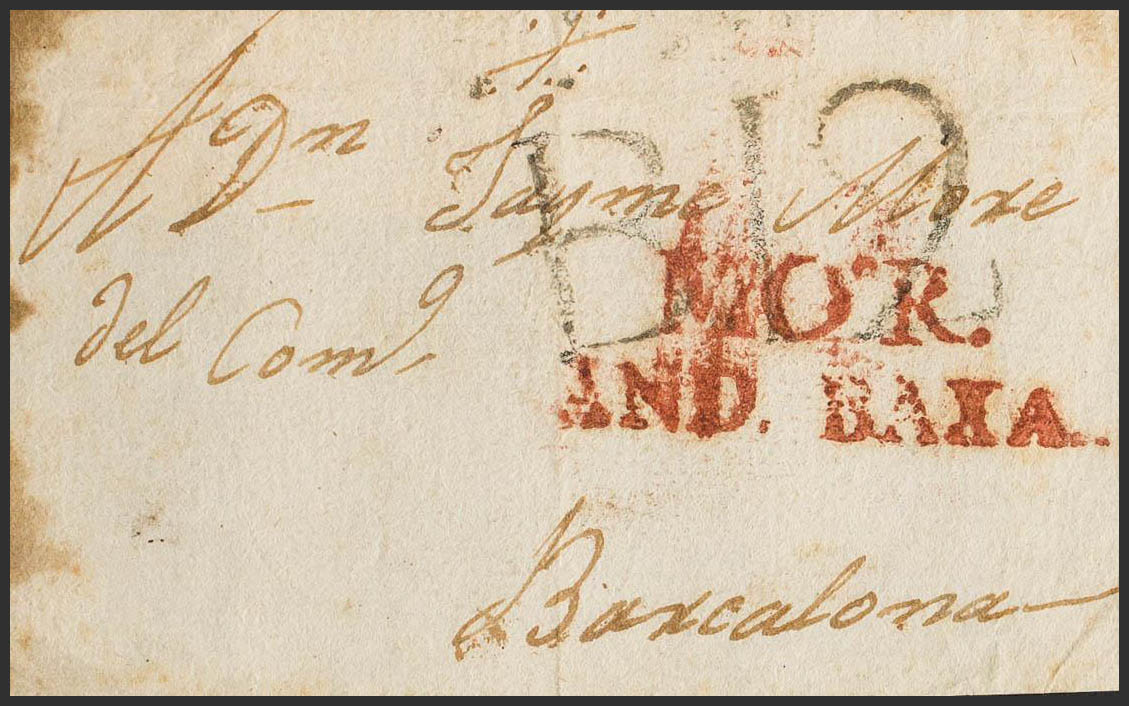 A Dn Jayme More
B12
del Como
MOR.
AND. BAXA.
Barcalona